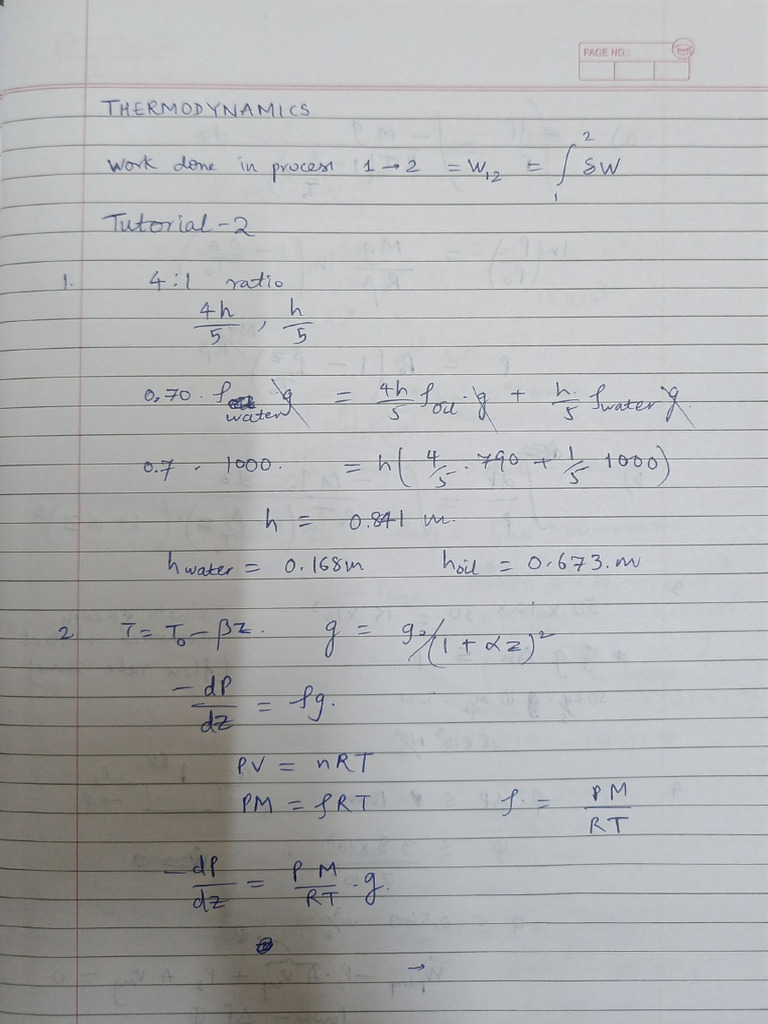 PAGE NO.:
THERMODYNAMICS
Work done in process 1→2 = W₁₂ = ∫₁² δW
Tutorial-2
1. 4:1 ratio
4h/5 , h/5
0.70 · ρwater g = 4h/5 ρoil · g + h/5 ρwater g
0.7 · 1000. = h(4/5 · 790 + 1/5 1000)
h = 0.841 m.
hwater = 0.168m hoil = 0.673.m
2 T = T₀ - βz. g = g₀/(1 + αz)²
-dP/dz = ρg.
PV = nRT
PM = ρRT ρ = PM/RT
-dP/dz = PM/RT · g.
→